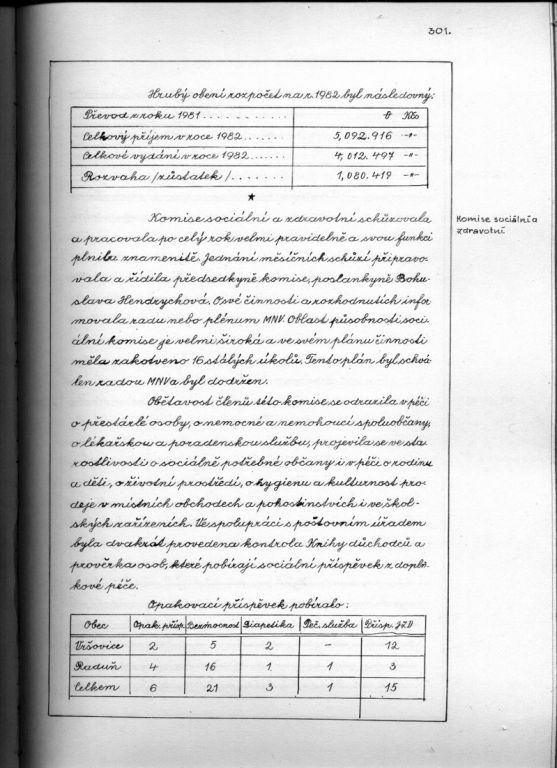 301.
Hrubý obení rozpočet na r. 1982 byl následovný:
Převod z roku 1981 . . . . . . . . . . . . . . . v Kčs
Celkový příjem v roce 1982 . . . . . . . 5,092.916 -"-
Celkové vydání v roce 1982 . . . . . . 4,012.497 -"-
Rozvaha /zůstatek / . . . . . . . . . . . 1,080.419 -"-
*
Komise sociální a zdravotní schůzovala
a pracovala po celý rok velmi pravidelně a svou funkci
plnila znamenitě. Jednání měsíčních schůzí připravo-
vala a řídila předsedkyně komise, poslankyně Bohu-
slava Hendrychová. O své činnosti a rozhodnutích infor
movala radu nebo plénum MNV. Oblast působnosti soci-
ální komise je velmi široká a ve svém plánu činnosti
měla zakotveno 16 stálých úkolů. Tento plán byl schvá
len radou MNV a byl dodržen.
Obětavost členů této komise se odrazila v péči
o přestárlé osoby, o nemocné a nemohoucí spoluobčany,
o lékařskou a poradenskou službu, projevila se ve sta
rostlivosti o sociálně potřebné občany i v péči o rodinu
a děti, o životní prostředí, o hygienu a kulturnost pro-
deje v místních obchodech a pohostinstvích i ve škol-
ských zařízeních. Ve spolupráci s poštovním úřadem
byla dvakrát provedena kontrola Knihy důchodců a
prověrka osob, které pobírají sociální příspěvek z doplň-
kové péče.
Komise sociální a
zdravotní
Opakovací příspěvek pobíralo:
Obec Opak. přísp. Bezmocnost Diapetika Peč. služba Přísp. JZD
Vršovice 2 5 2 - 12
Raduň 4 16 1 1 3
Celkem 6 21 3 1 15